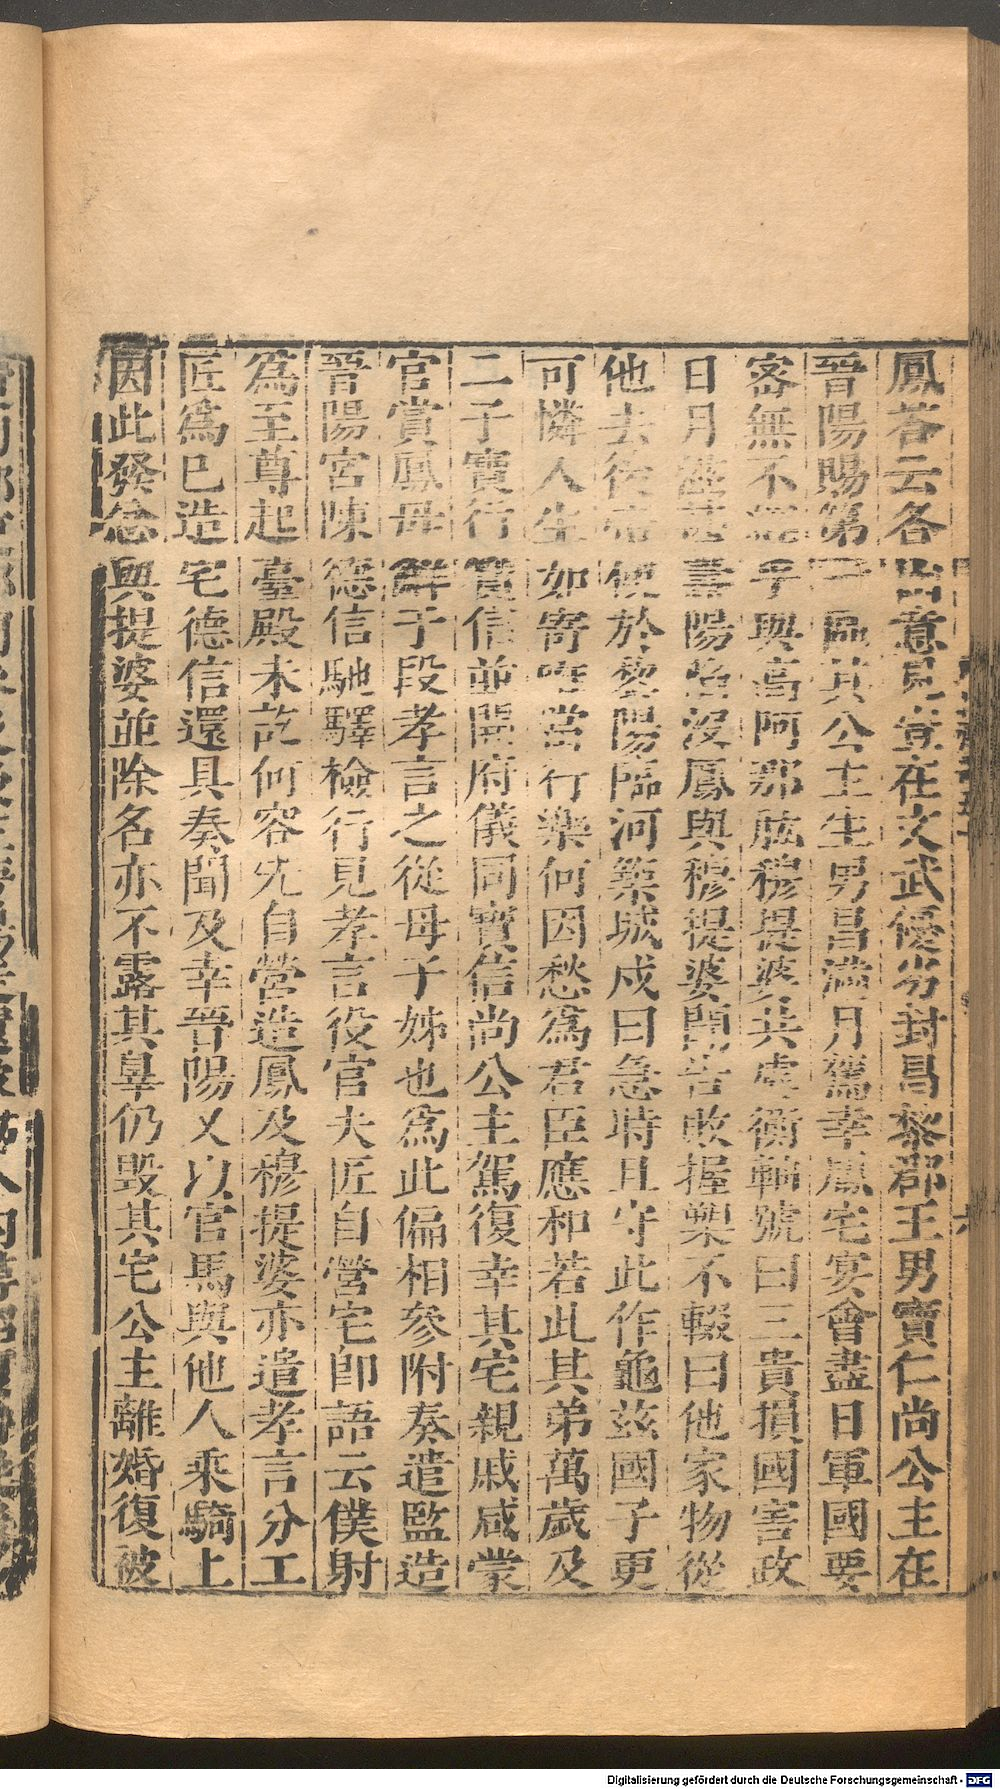 鳳答云各出意見豈在文武優劣封昌黎郡王男寶仁尚公主在
晉陽賜第一區其公主生男昌滿月駕幸鳳宅宴會盡日軍國要
密無不經手與高阿那肱穆提婆共處衡軸號曰三貴損國害政
日月滋甚壽陽陷沒鳳與穆提婆聞告敗握槊不輟曰他家物從
他去後帝使於黎陽臨河築城戍曰急時且守此作龜茲國子更
可憐人生如寄唯當行樂何因愁爲君臣應和若此其弟萬歲及
二子寶行寶信並開府儀同寶信尚公主駕復幸其宅親戚咸蒙
官賞鳳母鮮于段孝言之從母子姊也爲此偏相參附奏遣監造
晉陽宮陳德信馳驛檢行見孝言役官夫匠自營宅卽語云僕射
爲至尊起臺殿未訖何容先自營造鳳及穆提婆亦遣孝言分工
匠爲已造宅德信還具奏聞及幸晉陽又以官馬與他人乘騎上
因此發忿與提婆並除名亦不露其辠仍毀其宅公主離婚復被
Digitalisierung gefördert durch die Deutsche Forschungsgemeinschaft - DFG